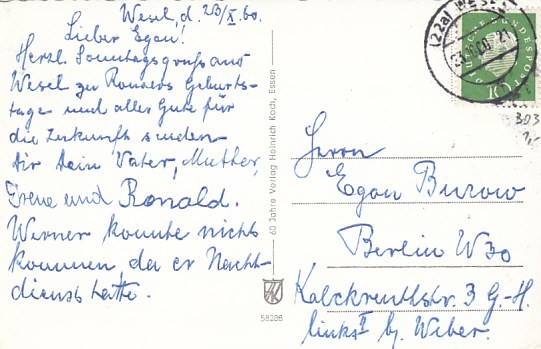 Wesel, d. 23/X. 60.
Lieber Egon!
Herzl. Sonntagsgruß aus
Wesel zu Ronners Geburts-
tage und alles Gute für
die Zukunft senden
Dir Dein Vater, Mutter,
Irene und Ronald.
Werner konnte nicht
kommen, da er Nacht-
dienst hatte.
60 Jahre Verlag Heinrich Koch, Essen
58286
(22a) WESEL 1
23.10.60 21
DEUTSCHE BUNDESPOST
10
303
1,-
Herrn
Egon Burow
Berlin W30
Kalckreuthstr. 3 G.-H.
links II by. Weber.